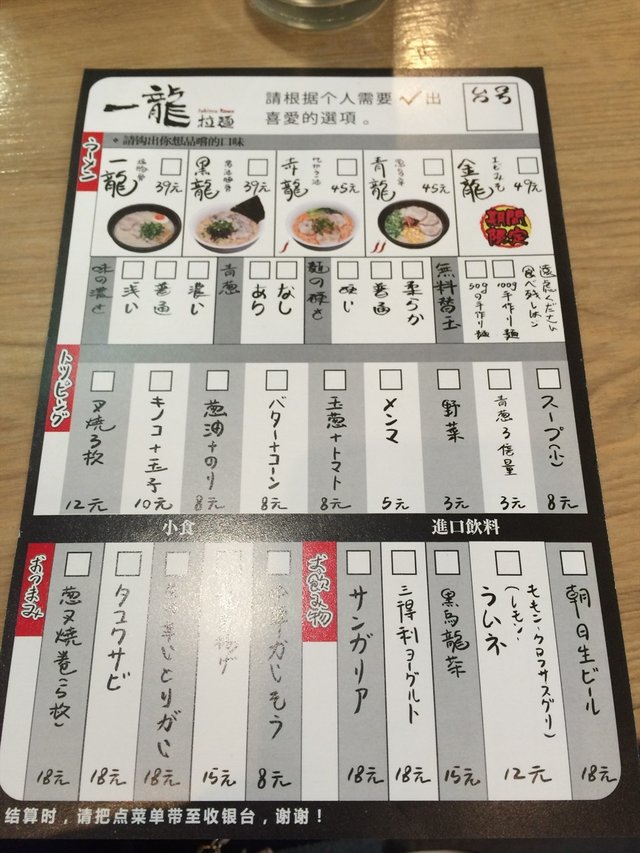 一龍
拉麺
請根据个人需要✓出
喜愛的選項。
台号
ラーメン
請钩出你想品嚐的口味
一龍
39元
黒龍
39元
赤龍
45元
青龍
45元
金龍
49元
期間
限定
味の濃さ
浅い
普通
濃い
青葱
あり
なし
麺の硬さ
普通
柔らか
無料替玉
50gの手作り麺
100g手作り麺
トッピング
叉焼3枚
12元
キノコ+玉子
10元
葱油+のり
8元
バター+コーン
8元
玉葱+トマト
8元
メンマ
5元
野菜
3元
青葱3倍量
3元
スープ(小)
8元
小食
進口飲料
おつまみ
葱叉焼巻(5枚)
18元
タコワサビ
18元
18元
15元
8元
お飲み物
サンガリア
18元
三得利ヨーグルト
18元
黒烏龍茶
15元
うぃネ
12元
朝日生ビール
18元
结算时，请把点菜单带至收银台，谢谢！